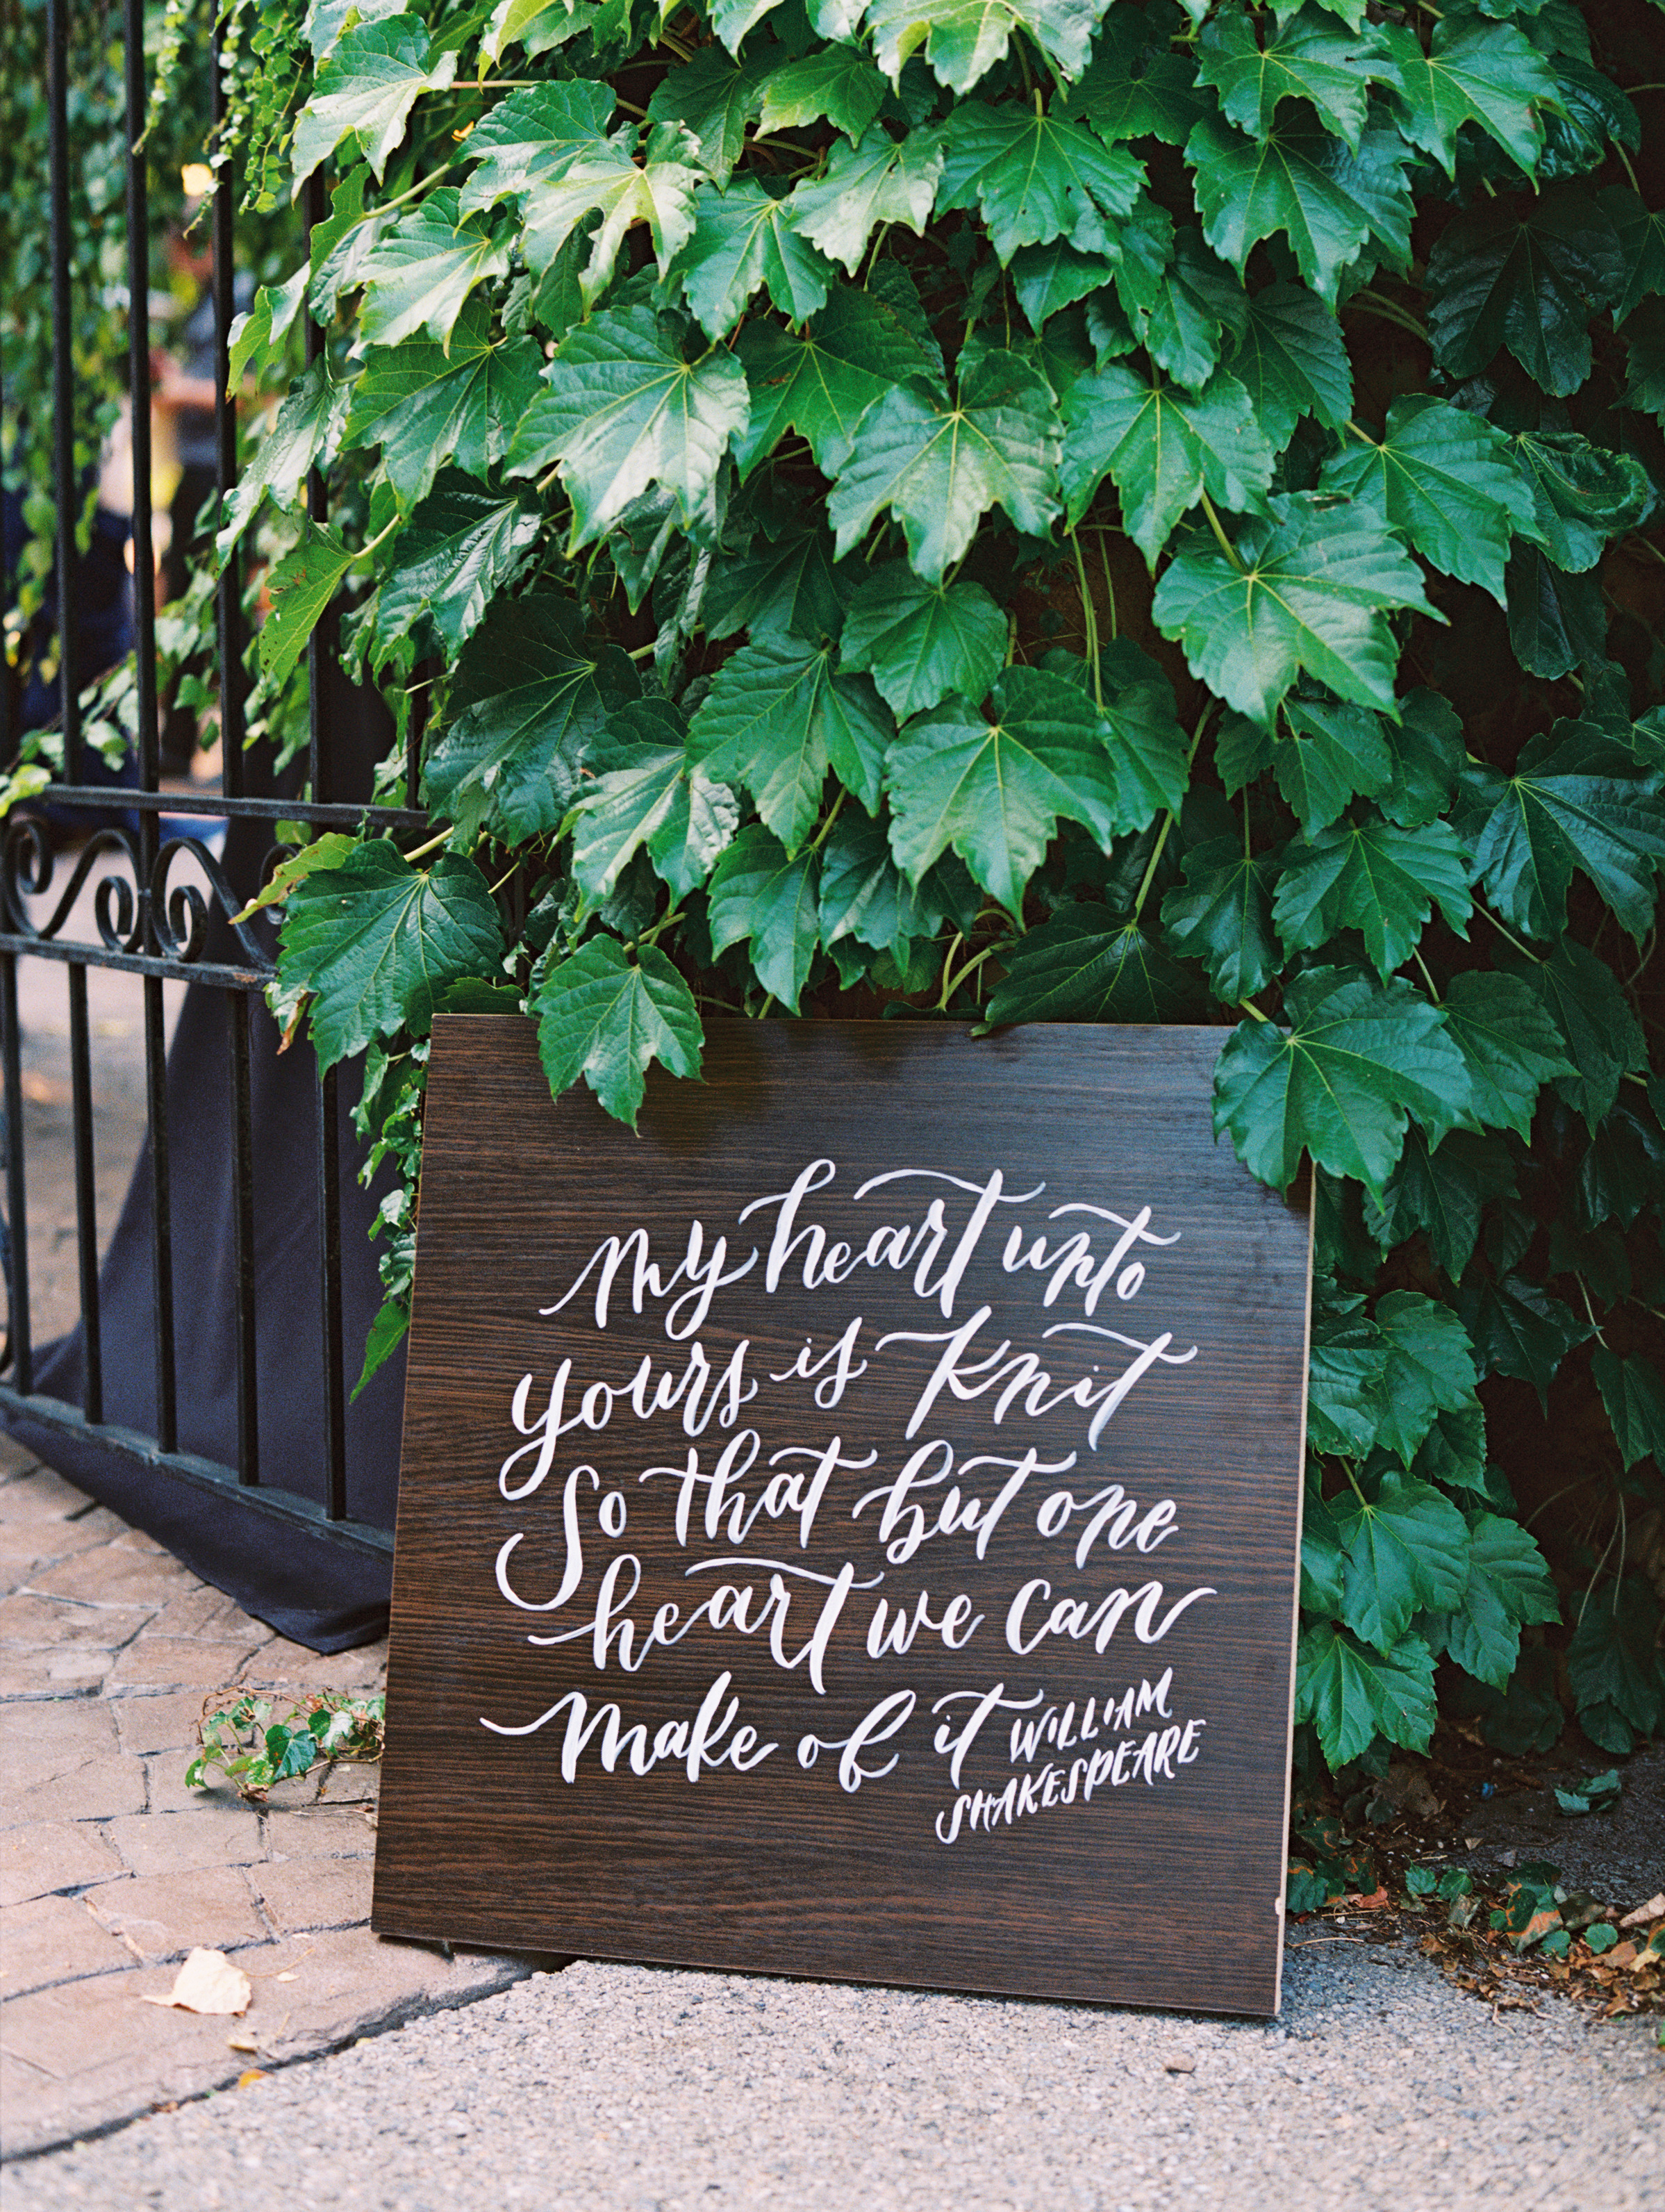 My heart unto
yours is knit
So that but one
heart we can
make of it WILLIAM
SHAKESPEARE